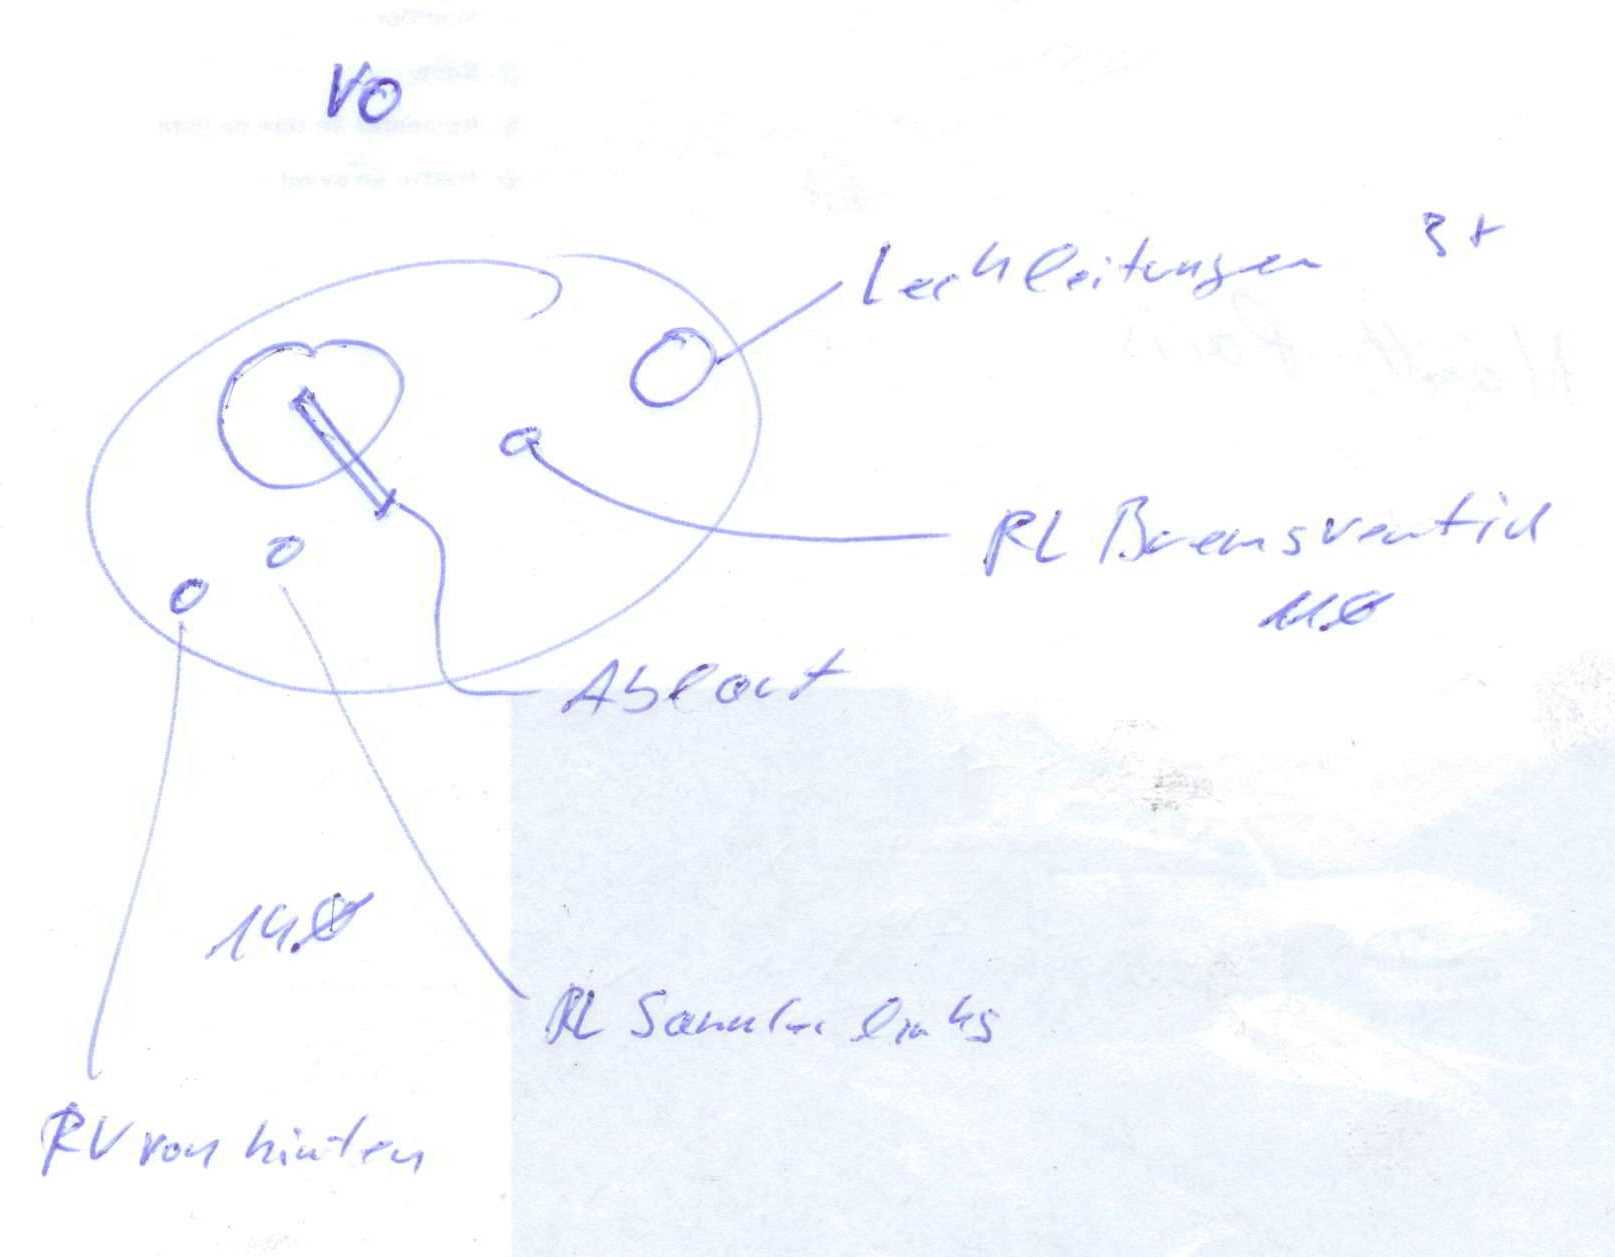 VO
Leckleitungen 3+
RL Bremsventil
11.Ø
Ablart
14.Ø
RL Sammler links
RV von hinten